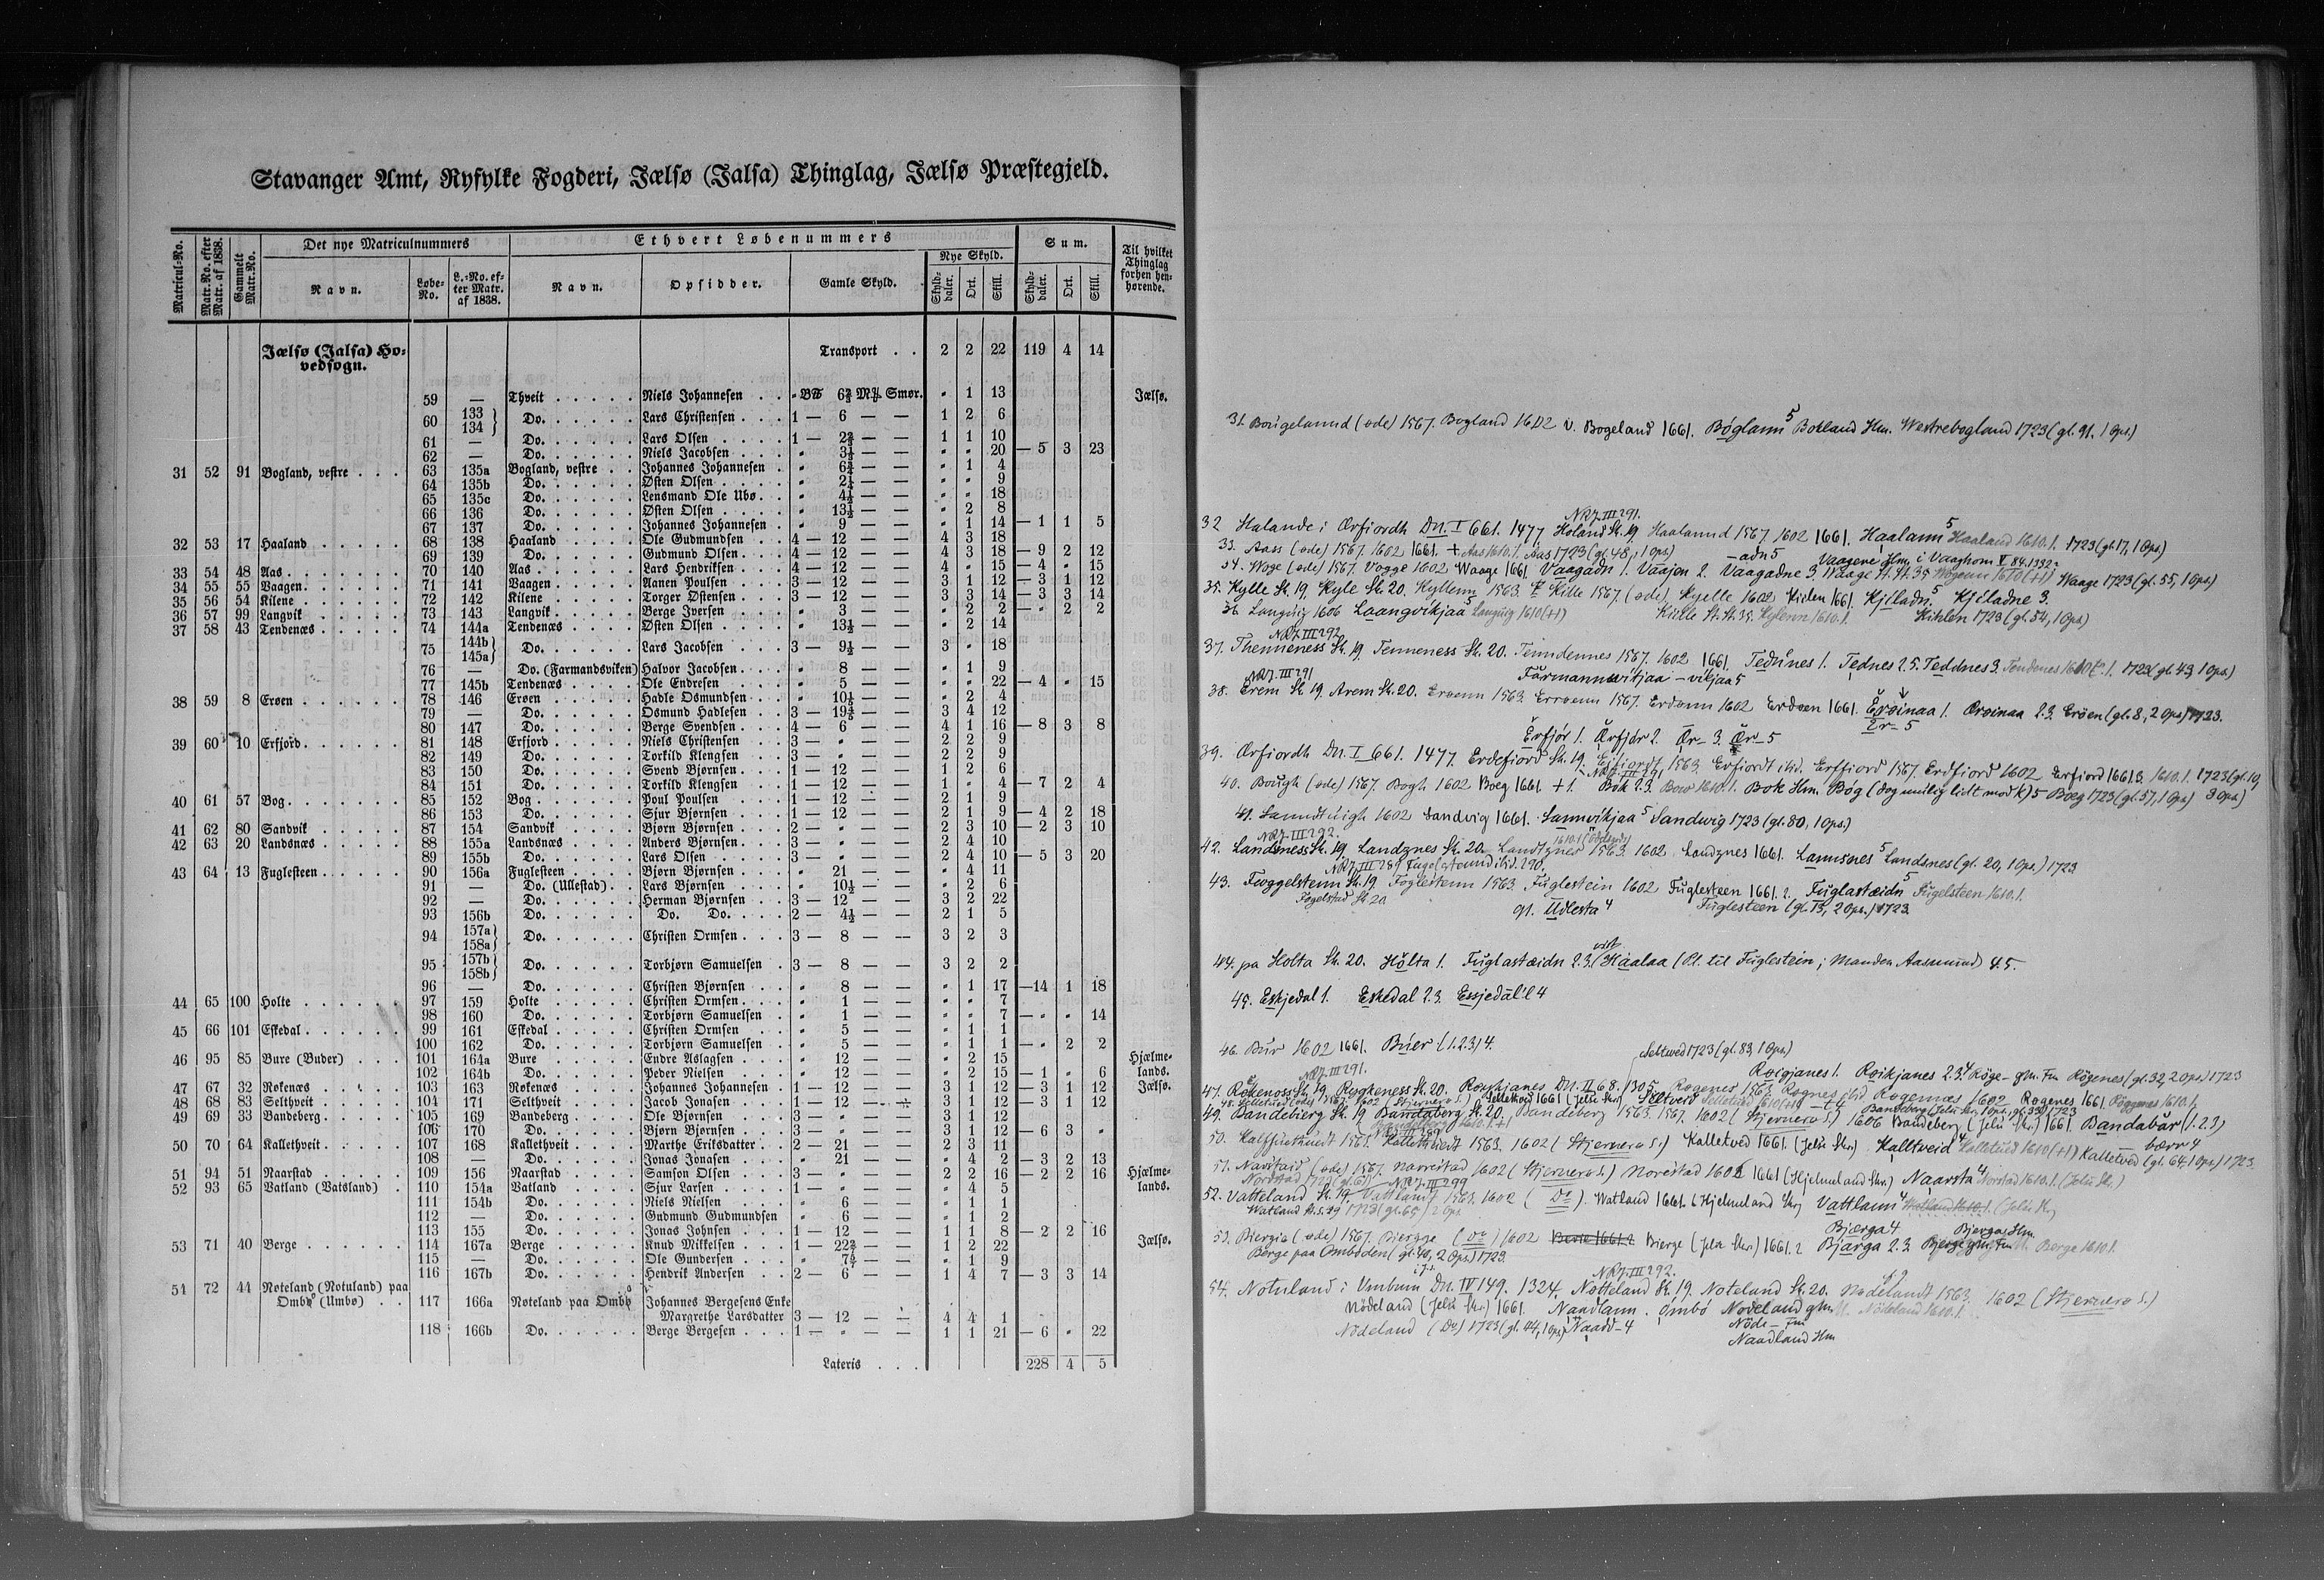 Stavanger Amt, Ryfylke Fogderi, Jælsø (Jalsa) Thinglag, Jælsø Præstegjeld.
Matricul-No. Matr.-No. efter Matr. af 1838. Gammelt Matr.-No. Det nye Matriculnummers Ethvert Løbenummers Sum. Til hvilket Thinglag forhen henhørende.
Navn. Løbe-No. L.-No. efter Matr. af 1838. Navn. Opsidder. Gamle Skyld. Nye Skyld. Skylddaler. Ort. Skill. Skylddaler. Ort. Skill.
Jælsø (Jalsa) Hovedsogn. Transport . . 2 2 22 119 4 14
59 — Thveit Niels Johannesen " B℔ 6⅔ M℔ Smør. " 1 13 Jælsø.
60 133 134 Do. Lars Christensen 1 — 6 — — 1 2 6
61 — Do. Lars Olsen 1 — 2⅔ — — 1 1 10
62 — Do. Niels Jacobsen " 3⅓ — — " " 20 — 5 3 23
31 52 91 Bogland, vestre 63 135a Bogland, vestre Johannes Johannesen " 6¾ — — " 1 4
64 135b Do. Østen Olsen " 2¼ — — " " 9
65 135c Do. Lensmand Ole Ubø " 4½ — — " " 18
66 136 Do. Østen Olsen " 13½ — — " 2 8
67 137 Do. Johannes Johannesen " 9 — — " 1 14 — 1 1 5
32 53 17 Haaland 68 138 Haaland Ole Gudmundsen 4 — 12 — — 4 3 18
69 139 Do. Gudmund Olsen 4 — 12 — — 4 3 18 — 9 2 12
33 54 48 Aas 70 140 Aas Lars Hendriksen 4 — " — — 4 " 15 — 4 " 15
34 55 55 Vaagen 71 141 Vaagen Aanen Poulsen 3 — 12 — — 3 1 12 — 3 1 12
35 56 54 Kilene 72 142 Kilene Torger Østensen 3 — 12 — — 3 3 14 — 3 3 14
36 57 99 Langvik 73 143 Langvik Berge Iversen " 3 — — " 2 2 — " 2 2
37 58 43 Tendenæs 74 144a Tendenæs Østen Olsen " 13½ — — " 2 14
75 144b 145a Do. Lars Jacobsen 3 — 9½ — — 3 " 18
76 — Do. (Farmandsviken) Halvor Jacobsen " 8 — — " 1 9
77 145b Tendenæs Ole Endresen " 5 — — " " 22 — 4 " 15
38 59 8 Erøen 78 146 Erøen Hadle Osmundsen " 10⅕ — — " 2 4
79 — Do. Osmund Hadlesen 3 — 19⅘ — — 3 4 12
80 147 Do. Berge Svendsen 4 — 6 — — 4 1 16 — 8 3 8
39 60 10 Erfjord 81 148 Erfjord Niels Christensen 3 — " — — 2 2 9
82 149 Do. Torkild Klengsen 3 — " — — 2 2 9
83 150 Do. Svend Bjørnsen 1 — 12 — — 1 2 6
84 151 Do. Torkild Klengsen 1 — 12 — — 1 " 4 — 7 2 4
40 61 57 Bog 85 152 Bog Poul Poulsen 1 — 12 — — 2 1 9
86 153 Do. Sjur Bjørnsen 1 — 12 — — 2 1 9 — 4 2 18
41 62 80 Sandvik 87 154 Sandvik Bjørn Bjørnsen 2 — " — — 2 3 10 — 2 3 10
42 63 20 Landsnæs 88 155a Landsnæs Anders Bjørnsen 3 — " — — 2 4 10
89 155b Do. Lars Olsen 3 — " — — 2 4 10 — 5 3 20
43 64 13 Fuglesteen 90 156a Fuglesteen Bjørn Bjørnsen " 21 — — " 4 11
91 — Do. (Ullestad) Lars Bjørnsen " 10½ — — " 2 6
92 — Do. Herman Bjørnsen 3 — 12 — — 3 2 22
93 156b Do. Do. Do. 2 — 4½ — — 2 1 5
94 157a 158a Do. Christen Ormsen 3 — 8 — — 3 2 3
95 157b 158b Do. Torbjørn Samuelsen 3 — 8 — — 3 2 2
96 — Do. Christen Bjørnsen " 8 — — " 1 17 —14 1 18
44 65 100 Holte 97 159 Holte Christen Ormsen " 1 — — " " 7
98 160 Do. Torbjørn Samuelsen " 1 — — " " 7 — " " 14
45 66 101 Eskedal 99 161 Eskedal Christen Ormsen " 5 — — " 1 1
100 162 Do. Torbjørn Samuelsen " 5 — — " 1 1 — " 2 2
46 95 85 Bure (Buder) 101 164a Bure Endre Aslagsen " 12 — — " 2 15 Hjælmelands.
102 164b Do. Peder Nielsen " 12 — — " 2 15 — 1 " 6
47 67 32 Røkenæs 103 163 Røkenæs Johannes Johannesen 1 — 12 — — 3 1 12 — 3 1 12 Jælsø.
48 68 83 Selthveit 104 171 Selthveit Jacob Jonasen 1 — 12 — — 3 1 12 — 3 1 12
49 69 33 Bandeberg 105 169 Bandeberg Ole Bjørnsen 3 — " — — 3 1 12
106 170 Do. Bjørn Bjørnsen 3 — " — — 3 1 12 — 6 3 "
50 70 64 Kallethveit 107 168 Kallethveit Marthe Eriksdatter 2 — 21 — — 2 3 11
108 — Do. Jonas Jonasen " 21 — — " 4 2 — 3 2 13
51 94 51 Naarstad 109 156 Naarstad Samson Olsen 3 — " — — 2 2 16 — 2 2 16 Hjælmelands.
52 93 65 Vatland (Vatsland) 110 154a Vatland Sjur Larsen 1 — " — — " 4 5
111 154b Do. Niels Nielsen " 6 — — " 1 1
112 — Do. Gudmund Gudmundsen " 6 — — " 1 2
113 155 Do. Jonas Johnsen 1 — 12 — — 1 1 8 — 2 2 16
53 71 40 Berge 114 167a Berge Knud Mikkelsen 1 — 22⅔ — — 1 2 22 Jælsø.
115 — Do. Ole Gundersen " 7⅓ — — " 1 9
116 167b Do. Hendrik Andersen 2 — 6 — — 1 4 7 — 3 3 14
54 72 44 Nøteland (Notuland) paa
Ombø (Umbø) 117 166a Nøteland paa Ombø Johannes Bergesens Enke
Margrethe Larsdatter 3 — 12 — — 4 4 1
118 166b Do. Berge Bergesen 1 — " — — 1 1 21 — 6 " 22
Lateris . . . 228 4 5
31. Bougelannd (øde) 1567. Bogland 1602 v. Bogeland 1661. Bøglann 5 Botland Hm. Westrebogland 1723 (gl. 91. 1 Ops.)
NRJ. III 291.
32 Halande i Ærfiordh Dn. I 661. 1477 Holand St. 19 Haalannd 1567 1602 1661. Haalann 5 Haaland 1610.1. 1723 (gl. 17, 1 Ops)
33. Aass (øde) 1567. 1602 1661. + Aas 1610.1. Aas 1723 (gl. 48, 1 Ops) Vaagene Hm. i Vaaghom V 84. 1392
34. Woge (øde) 1567. Vogge 1602 Waage 1661 Vaagadn 1. Vaajen 2. Vaagadne 3. -adn 5 Waage 1723 (gl. 55, 1 Ops)
35. Kylle St. 19. Kyle St. 20. Kyllenn 1563. Kille 1567. (øde) Kyelle 1602 Kielen 1661. Kjiladn. 5 Kjiladne 3.
36. Langvig 1606 Laangvikjaa 5 Langvig 1610 (+1) Kielle St. St. 35. Kylenn 1610.1. Kihlen 1723 (gl. 54, 1 Ops)
NRJ. III 292
37. Thenneness St. 19. Tenneness St. 20. Tenndennes 1567. 1602 1661. Tednnes 1. Tednes 2.5. Teddnes 3. 1723 (gl. 43, 1 Ops.)
NRJ. III 291 Farmannsvikjaa -vikjaa 5
38. Erem St. 19. Arem St. 20. Eroenn 1563. Erroenn 1567. Erdonn 1602 Erdøen 1661. Eroinaa 1. Æroinaa 2.3. Erøen (gl. 8, 2 Ops) 1723.
Erfjór 1. Ærfjór 2. Ær- 3. Ær- 5 Er- 5
39. Ærfiordh Dn. I 661. 1477. Erdefiord St. 19. Erfiordt 1563. Erfiordt ibid. Erffiord 1567. Erdfiord 1602 Erfiord 1661 3. 1610.1. 1723 (gl. 10, 3 Ops)
NRJ. III 291
40. Bough (øde) 1567. Bogh 1602 Boeg 1661. + 1. Bok 2.3. Bow 1610.1. Bok Hm. Bøg (dog muligt lidt mod k) 5 Boeg 1723 (gl. 57, 1 Ops)
41. Sanndtuigh 1602 Sandvig 1661. Sannvikjaa 5 Sandwig 1723 (gl. 80, 1 Ops.)
NRJ. III 292.
42. Landsness St. 19. Landznes St. 20. Landtznes 1563. 1602 Landznes 1661. Lannsnes 5 Landsnes (gl. 20, 1 Ops.) 1723
NRJ. III 289
43. Fuggelstenn St. 19 Foglestenn 1563. Fuglestein 1602 Fuglesteen 1661. 2. Fuglastæidn 5 Fugelsteen 1610.1.
Fogelstad St. 20 gt. Udlesta 4 Fuglesteen (gl. 13, 2 Ops.) 1723
44. pa Holta St. 20. Hólta 1. Fuglastæidn 2.3. (Kaalaa (Pl. til Fuglestein; Manden Aasmund) 4.5.
45. Eskjedal 1. Eskedal 2.3. Essjedal'l 4
46. Bur 1602 1661. Búer (1.2.3) 4. Seltued 1723 (gl. 83, 1 Ops.)
NRJ. III 291. Roigjanes 1. Roikjanes 2.3. 4 Røge- gm. Fm Røgenes (gl. 32, 2 Ops) 1723
47. Rokenoss St. 19. Rogheness St. 20. Roykjanes Dn. II 68. 1305. Rogenes 1563. Rognes ibid. Rogenæs 1602 Rogenes 1661. Roggenes 1610.1.
48. Selletued (øde) 1567. 1602 (Stjernerø S.) Seltetved 1661 (Jelsø Skr.) Seltveid
49. Bandebierg St. 19 Bandaberg St. 20. Bandeberg 1563. 1567. 1602 (Stjernerø S.) 1606 Bandeberg (Jelsø Skr.) 1661. Bandabar (1.2.3)
NRJ. III 289 -bærr 4
50. Kalffuethuedt 1563. Kallethuedt 1563. 1602 (Stjernerø S.) Kalletved 1661. (Jelsø Skr.) Kalltveid 4 Kalletued 1610 (+1) Kalletved (gl. 64, 1 Ops) 1723.
51. Naustaid (øde) 1567. Narrestad 1602 (Stjernerø S.) Norestad 1602 1661 (Hjelmeland Skr.) Naarsta 4 Norstad 1610.1. (Jelsø Skr.)
NRJ. III 299
52. Vatteland St. 19. Vattlandt 1563. 1602 (Do). Watland 1661. (Hjelmeland Skr.) Vattlann 4
Watland 1723 (gl. 65) 2 Ops Bjærga 4 Bjerga Hm.
53. Biergia (øde) 1567. Bierge (Do) 1602 Bierge (Jelsø Skr.) 1661. 2 Bjarga 2.3. Bjerge gm. Fm. Berge 1610.1.
Berge paa Ombøden (gl. 40, 2 Ops) 1723.
NRJ. III 292.
54. Notuland i Umbum Dn. IV 149. 1324. Notteland St. 19. Noteland St. 20. Nodelandt 1563. 1602 (Stjernerø S.)
Nödeland (Jelsø Skr.) 1661. Naadlann. Ombö Nodeland gm. Nödeland 1610.1.
Nödeland (Do) 1723 (gl. 44, 1 Ops) Naadd- 4 Nöde- Fm
Naadland Hm